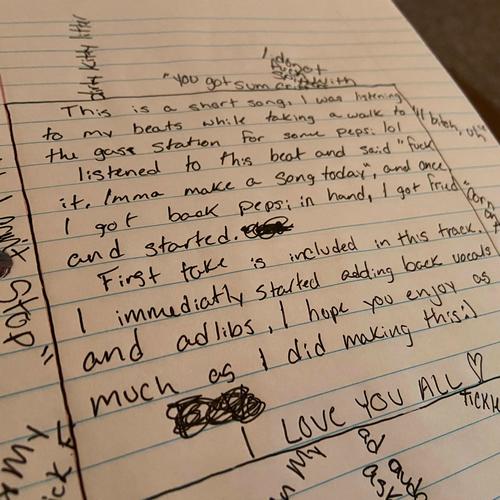 Dirty Kitty litter
I do not
"You got sum
This is a short song. I was listening
to my beats while taking a walk to
the gass station for some pepsi lol
listened to this beat and said "fuck
it. Imma make a song today", and once
I got back pepsi in hand, I got fried
and started.
First take is included in this track.
I immediatly started adding back vocals
and adlibs, I hope you enjoy as
much as I did making this:)
I LOVE YOU ALL ♡
bitch,
STOP"
My
ad